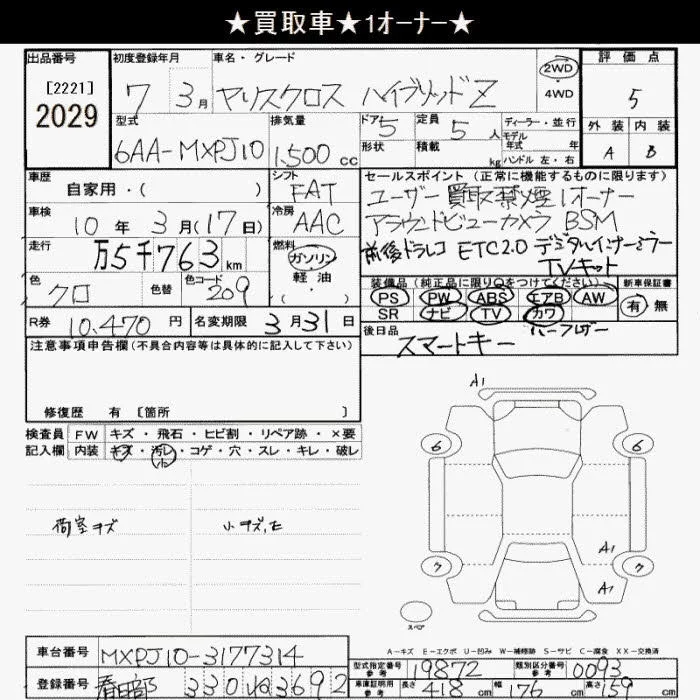 ★買取車★1オーナー★
出品番号
[2221]
2029
初度登録年月
7 3月
車名・グレード
ヤリスクロス ハイブリッドZ
2WD
4WD
評価点
5
外装 内装
A B
型式
6AA-MXPJ10
排気量
1,500 cc
ドア 5
形状
定員 5 人
積載 kg
ディーラー・並行
モデル年式 年式
ハンドル 左・右
車歴
自家用・( )
シフト
FAT
セールスポイント(正常に機能するものに限ります)
ユーザー買取禁煙1オーナー
アラウンドビューカメラ BSM
前後ドラレコ ETC2.0 デジタルインナーミラー
TVキット
車検
10年3月(17日)
冷房
AAC
走行
万5千763km
燃料
ガソリン
軽・油
( )
色
クロ
色替
色コード
209
装備品(純正品に限り○をつけてください)
PS PW ABS エアB AW
SR ナビ TV カワ
ハーフレザー
新車保証書
有 無
R券 10,470円 名変期限 3月31日
後日品
スマートキー
注意事項申告欄(不具合内容等は具体的に記入して下さい)
修復歴 有 [箇所 ]
検査員 FW キズ・飛石・ヒビ割・リペア跡・×要
記入欄 内装 キズ・汚レ・コゲ・穴・スレ・キレ・破レ
小
荷室キズ
小キズ,モ
A1
6 6
A1
7 7
A1
スペア
A-キズ E-エクボ U-凹み W-補修跡 S-サビ C-腐食 XX-交換済
車台番号 MXPJ10-3177314
登録番号 春日部 330 3692
型式指定番号 参考 19872
類別区分番号 参考 0093
車庫証明用 参考 長さ 418 cm 幅 176 cm 高さ 159 cm